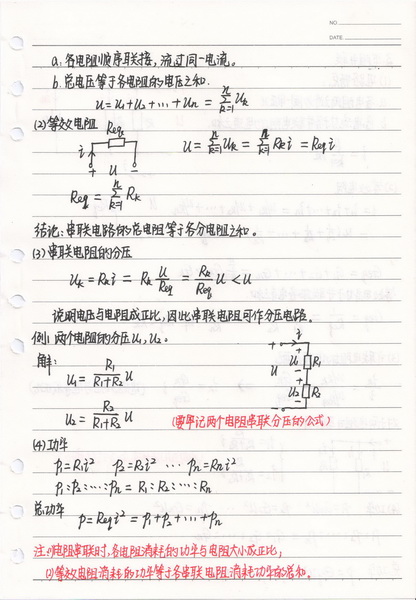 NO.
DATE
a. 各电阻顺序联接，流过同一电流。
b. 总电压等于各电阻的电压之和.
u = u₁ + u₂ + … + uₙ = ∑ₖ₌₁ⁿ uₖ
(2) 等效电阻
Req
i
+ u −
u = ∑ₖ₌₁ⁿ uₖ = ∑ₖ₌₁ⁿ Rₖi = Req i
Req = ∑ₖ₌₁ⁿ Rₖ
结论: 串联电路的总电阻等于各分电阻之和。
(3) 串联电阻的分压
uₖ = Rₖi = Rₖ u/Req = Rₖ/Req u < u
说明电压与电阻成正比，因此串联电阻可作分压电路。
例: 两个电阻的分压 u₁, u₂.
解:
u₁ = R₁/(R₁+R₂) u
u₂ = R₂/(R₁+R₂) u
i
+
+
u
u₁
R₁
−
+
u₂
R₂
−
−
(要牢记两个电阻串联分压的公式)
(4) 功率
p₁ = R₁i² p₂ = R₂i² … pₙ = Rₙi²
p₁ : p₂ : … : pₙ = R₁ : R₂ : … : Rₙ
总功率
p = Req i² = p₁ + p₂ + … + pₙ
注: (1) 电阻串联时, 各电阻消耗的功率与电阻大小成正比;
(2) 等效电阻消耗的功率等于各串联电阻消耗功率的总和。